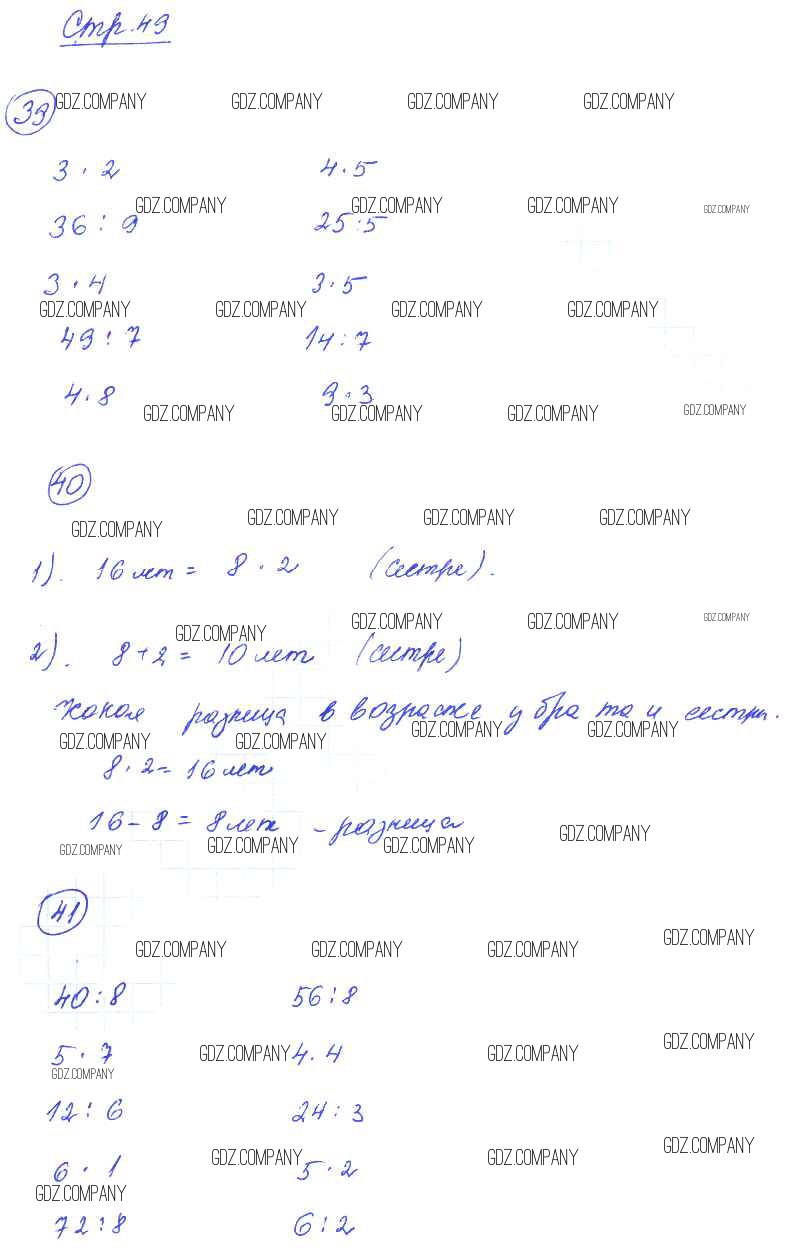 Стр. 49
39 GDZ.COMPANY GDZ.COMPANY GDZ.COMPANY GDZ.COMPANY
3 · 2 4 · 5
GDZ.COMPANY GDZ.COMPANY GDZ.COMPANY GDZ.COMPANY
36 : 9 25 : 5
3 · 4 3 · 5
GDZ.COMPANY GDZ.COMPANY GDZ.COMPANY GDZ.COMPANY
49 : 7 14 : 7
4 · 8 9 · 3
GDZ.COMPANY GDZ.COMPANY GDZ.COMPANY GDZ.COMPANY
40
GDZ.COMPANY GDZ.COMPANY GDZ.COMPANY GDZ.COMPANY
1). 16 лет = 8 · 2 (сестре).
GDZ.COMPANY GDZ.COMPANY GDZ.COMPANY GDZ.COMPANY
2). 8 + 2 = 10 лет (сестре)
Какая разница в возрасте у брата и сестры.
GDZ.COMPANY GDZ.COMPANY GDZ.COMPANY GDZ.COMPANY
8 · 2 = 16 лет
16 - 8 = 8 лет - разница
GDZ.COMPANY GDZ.COMPANY GDZ.COMPANY GDZ.COMPANY
41
GDZ.COMPANY GDZ.COMPANY GDZ.COMPANY GDZ.COMPANY
40 : 8 56 : 8
5 · 7 GDZ.COMPANY 4 · 4 GDZ.COMPANY GDZ.COMPANY
GDZ.COMPANY
12 : 6 24 : 3
GDZ.COMPANY GDZ.COMPANY GDZ.COMPANY
6 · 1 5 · 2
GDZ.COMPANY
72 : 8 6 : 2